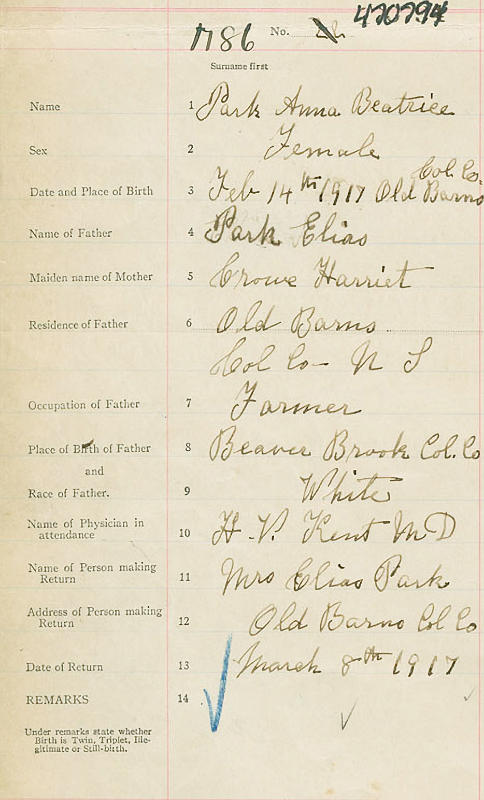 470794
1786 No.
Surname first
Name 1 Park Anna Beatrice
Sex 2 Female
Col. Co.
Date and Place of Birth 3 Feb 14th 1917 Old Barns
Name of Father 4 Park Elias
Maiden name of Mother 5 Crowe Harriet
Residence of Father 6 Old Barns
Col Co- N S
Occupation of Father 7 Farmer
Place of Birth of Father 8 Beaver Brook Col. Co
and
Race of Father. 9 White
Name of Physician in
attendance 10 H. V. Kent M D
Name of Person making
Return 11 Mrs Elias Park
Address of Person making
Return 12 Old Barns Col Co
Date of Return 13 March 8th 1917
REMARKS 14
Under remarks state whether
Birth is Twin, Triplet, Ille-
gitimate or Still-birth.